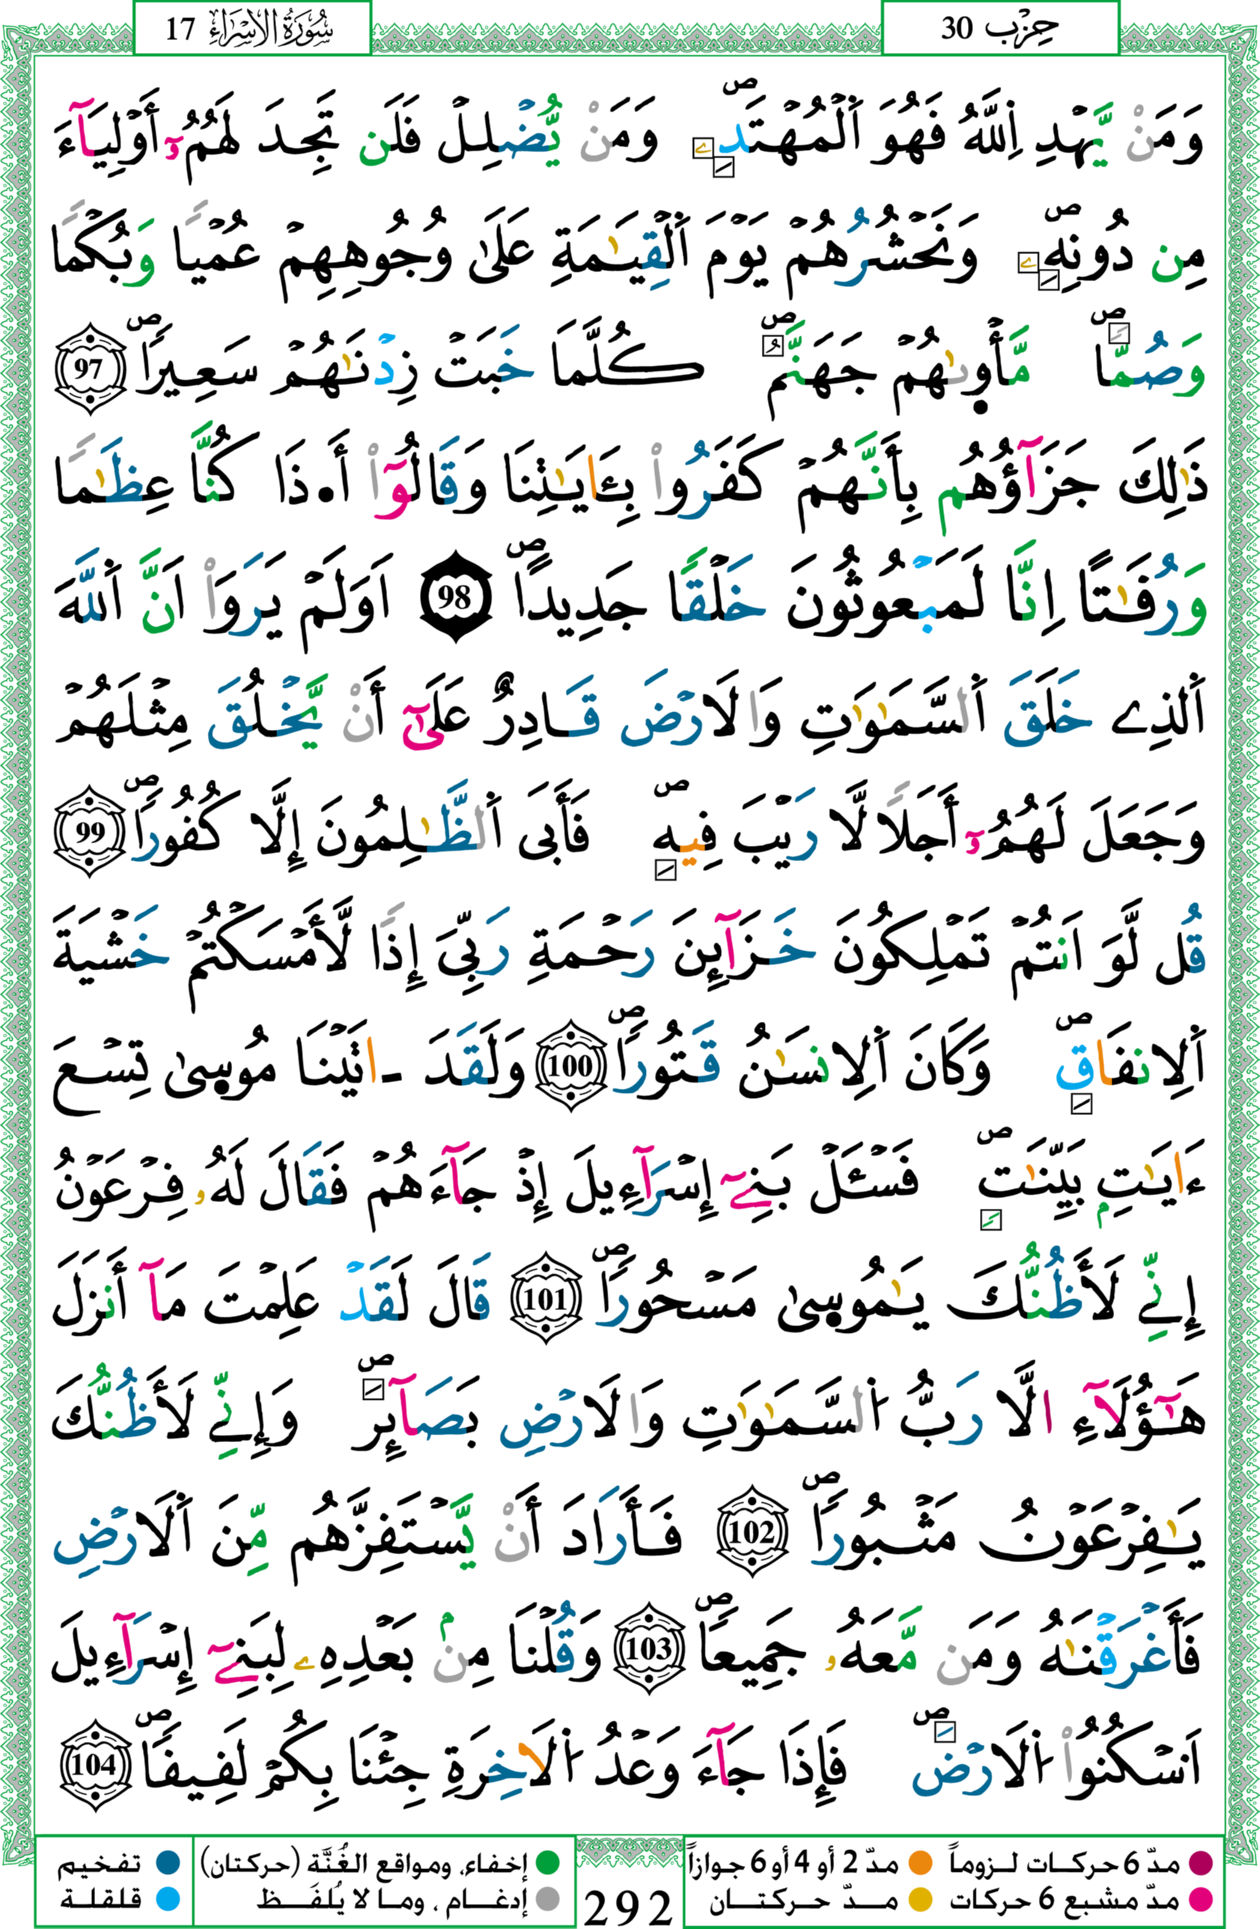 سُورَةُ الْإِسْرَاءِ 17
حِزْب 30
وَمَنْ يَّهْدِ اِ۬للَّهُ فَهُوَ اَ۬لْمُهْتَدِۦ ۖ وَمَنْ يُّضْلِلْ فَلَن تَجِدَ لَهُمُۥٓ أَوْلِيَآءَ
مِن دُونِهِۦ ۖ وَنَحْشُرُهُمْ يَوْمَ اَ۬لْقِيَٰمَةِ عَلَىٰ وُجُوهِهِمْ عُمْيًا وَبُكْمًا
وَصُمًّا ۖ مَّأْو۪يٰهُمْ جَهَنَّمُ ۖ كُلَّمَا خَبَتْ زِدْنَٰهُمْ سَعِيرًا ۖ 97
ذَٰلِكَ جَزَآؤُهُم بِأَنَّهُمْ كَفَرُواْ بِـَٔايَٰتِنَا وَقَالُوٓاْ أَ•ذَا كُنَّا عِظَٰمًا
وَرُفَٰتًا اِنَّا لَمَبْعُوثُونَ خَلْقًا جَدِيدًا ۖ 98 اَوَلَمْ يَرَوَاْ انَّ اَ۬للَّهَ
اَ۬لذِے خَلَقَ اَ۬لسَّمَٰوَٰتِ وَالَارْضَ قَادِرٌ عَلَىٰٓ أَنْ يَّخْلُقَ مِثْلَهُمْ
وَجَعَلَ لَهُمُۥٓ أَجَلًا لَّا رَيْبَ فِيهِ ۖ فَأَبَى اَ۬لظَّٰلِمُونَ إِلَّا كُفُورًا ۖ 99
قُل لَّوَ اَنتُمْ تَمْلِكُونَ خَزَآئِنَ رَحْمَةِ رَبِّيَ إِذًا لَّأَمْسَكْتُمْ خَشْيَةَ
اَ۬لِانفَاقِ ۖ وَكَانَ اَ۬لِانسَٰنُ قَتُورًا ۖ 100 وَلَقَدَ ـاتَيْنَا مُوس۪ىٰ تِسْعَ
ءَايَٰتِۢ بَيِّنَٰتٍ ۖ فَسْـَٔلْ بَنِےٓ إِسْرَآءِيلَ إِذْ جَآءَهُمْ فَقَالَ لَهُۥ فِرْعَوْنُ
إِنِّے لَأَظُنُّكَ يَٰمُوس۪ىٰ مَسْحُورًا ۖ 101 قَالَ لَقَدْ عَلِمْتَ مَآ أَنزَلَ
هَٰٓؤُلَآءِ الَّا رَبُّ اُ۬لسَّمَٰوَٰتِ وَالَارْضِ بَصَآئِرَ ۖ وَإِنِّے لَأَظُنُّكَ
يَٰفِرْعَوْنُ مَثْبُورًا ۖ 102 فَأَرَادَ أَنْ يَّسْتَفِزَّهُم مِّنَ اَ۬لَارْضِ
فَأَغْرَقْنَٰهُ وَمَن مَّعَهُۥ جَمِيعًا ۖ 103 وَقُلْنَا مِنۢ بَعْدِهِۦ لِبَنِےٓ إِسْرَآءِيلَ
اَ۟سْكُنُواْ اُ۬لَارْضَ ۖ فَإِذَا جَآءَ وَعْدُ اُ۬لَاخِرَةِ جِئْنَا بِكُمْ لَفِيفًا ۖ 104
مدّ 6 حركات لـزوماً مدّ 2 أو 4 أو 6 جوازاً إخفاء، ومواقع الغُنَّة (حركتان) تفخيم
مدّ مشبع 6 حركات مدّ حركتان إدغام ، وما لا يُلفَظ قلقلة
292